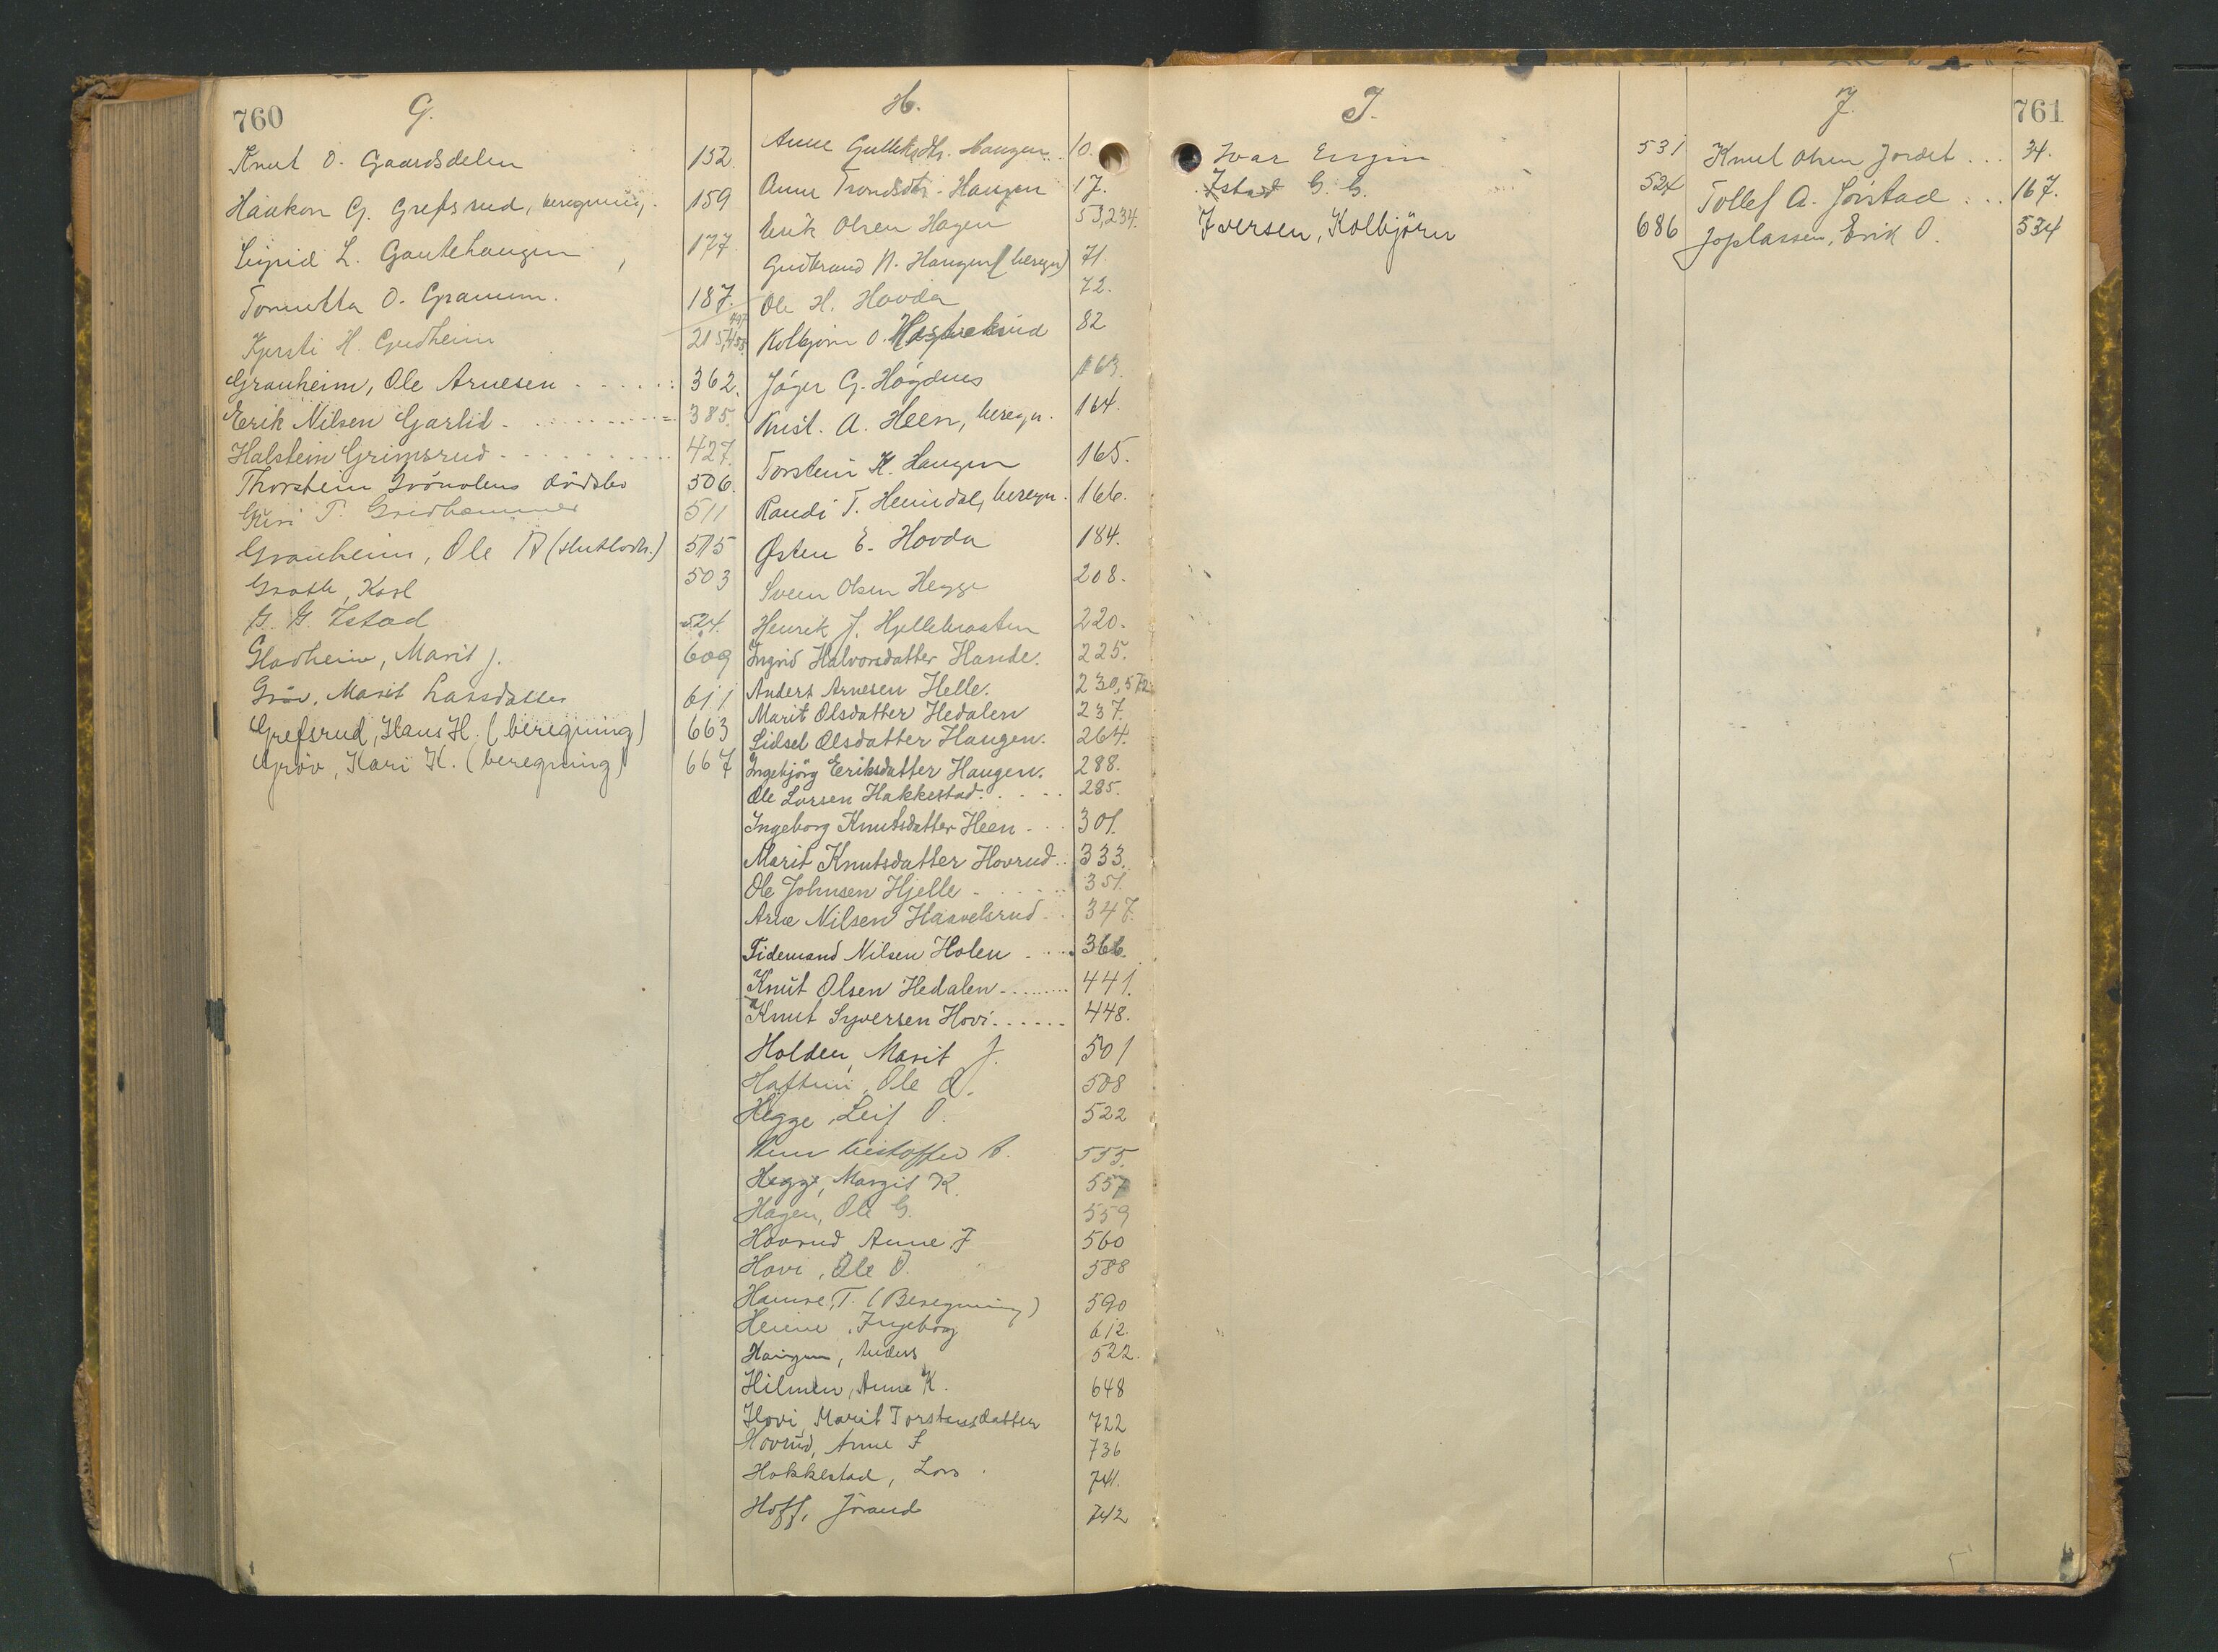 760
G.
Knut O. Gaardsdelen 152.
Haakon G. Grefsrud, beregning. 159
Sigrid L. Gautehaugen 177.
O. Granum. 187.
Kjersti H. Grudheim 215,
Granheim, Ole Arnesen . . . . . : 362.
Erik Nilsen Garlid - . . . . . . . . . - 385.
Halstein Grimsrud - . . . . . . . 427.
Thorstein Grönolens dödsbo 506.
Guri T. 511
Granheim, Ole A (sluttlodn.) 515
Grøthe, Karl 503
G. G. Istad 524.
Gladheim, Marit J. 609
Gröv, Marit Larsdatter 611
Grefsrud, Hans H. (beregning) 663
Gröv, Kari K. (beregning) 667
H.
Anne Gulliksdtr. Haugen 10.
Anne Trondsdtr. Haugen 17.
Erik Olsen Hagen 53,234.
Gudbrand N. Haugen (beregn) 71.
Ole H. Hovda 72.
Kolbjörn O. 82
Jöger G. Högdnes 163.
Krist. A. Heen, beregn. 164.
Torstein K. Haugen 165.
Randi T. Heimdal, beregn. 166.
Østen E. Hovda 184.
Svein Olsen Hegge 208.
Henrik J. Hjellebraaten 220.
Ingrid Halvorsdatter Hande. 225.
Anders Arnesen Helle. 230,572
Marit Olsdatter Hedalen 237.
Sidsel Olsdatter Haugen. 264.
Ingebjörg Eeriksdatter Haugen. 288.
Ole Larsen Hakkestad. . . . . 285.
Ingeborg Knutsdatter Heen - . . 301.
Marit Knutsdatter Hovrud . . 333.
Ole Johnsen Hjelle - . . . . . 351.
Arne Nilsen Haavelsrud . . 347.
Tidemand Nilsen Holen - . . . . 366.
Knut Olsen Hedalen - . . . . . . . 441.
Knut Syversen Hovi . . . . . . 448.
Holden, Marit J. 501
Haftun, Ole A. 508
Hegge, Leif O. 522
Heen Kristoffer A. 555.
Hegge, Margit K. 557
Hagen, Ole G. 559
Hovrud Anne F 560
Hovi, Ole O. 588
T. (Beregning) 590
Heiene, Ingeborg 612.
Haugen, Anders 522.
Hilmen, Anne K. 648
Hovi, Marit Torsteinsdatter 722
Hovrud, Anne F 736
Hakkestad, Lars. 741.
Hoff, Jörand 742
I.
Ivar Engen 531
Istad G. G. 524
Iversen, Kolbjörn 686
J.
761
Knut Olsen Jordet . . . 34.
Tollef A. Jörstad . . . 167.
Joplassen, Erik O. 534